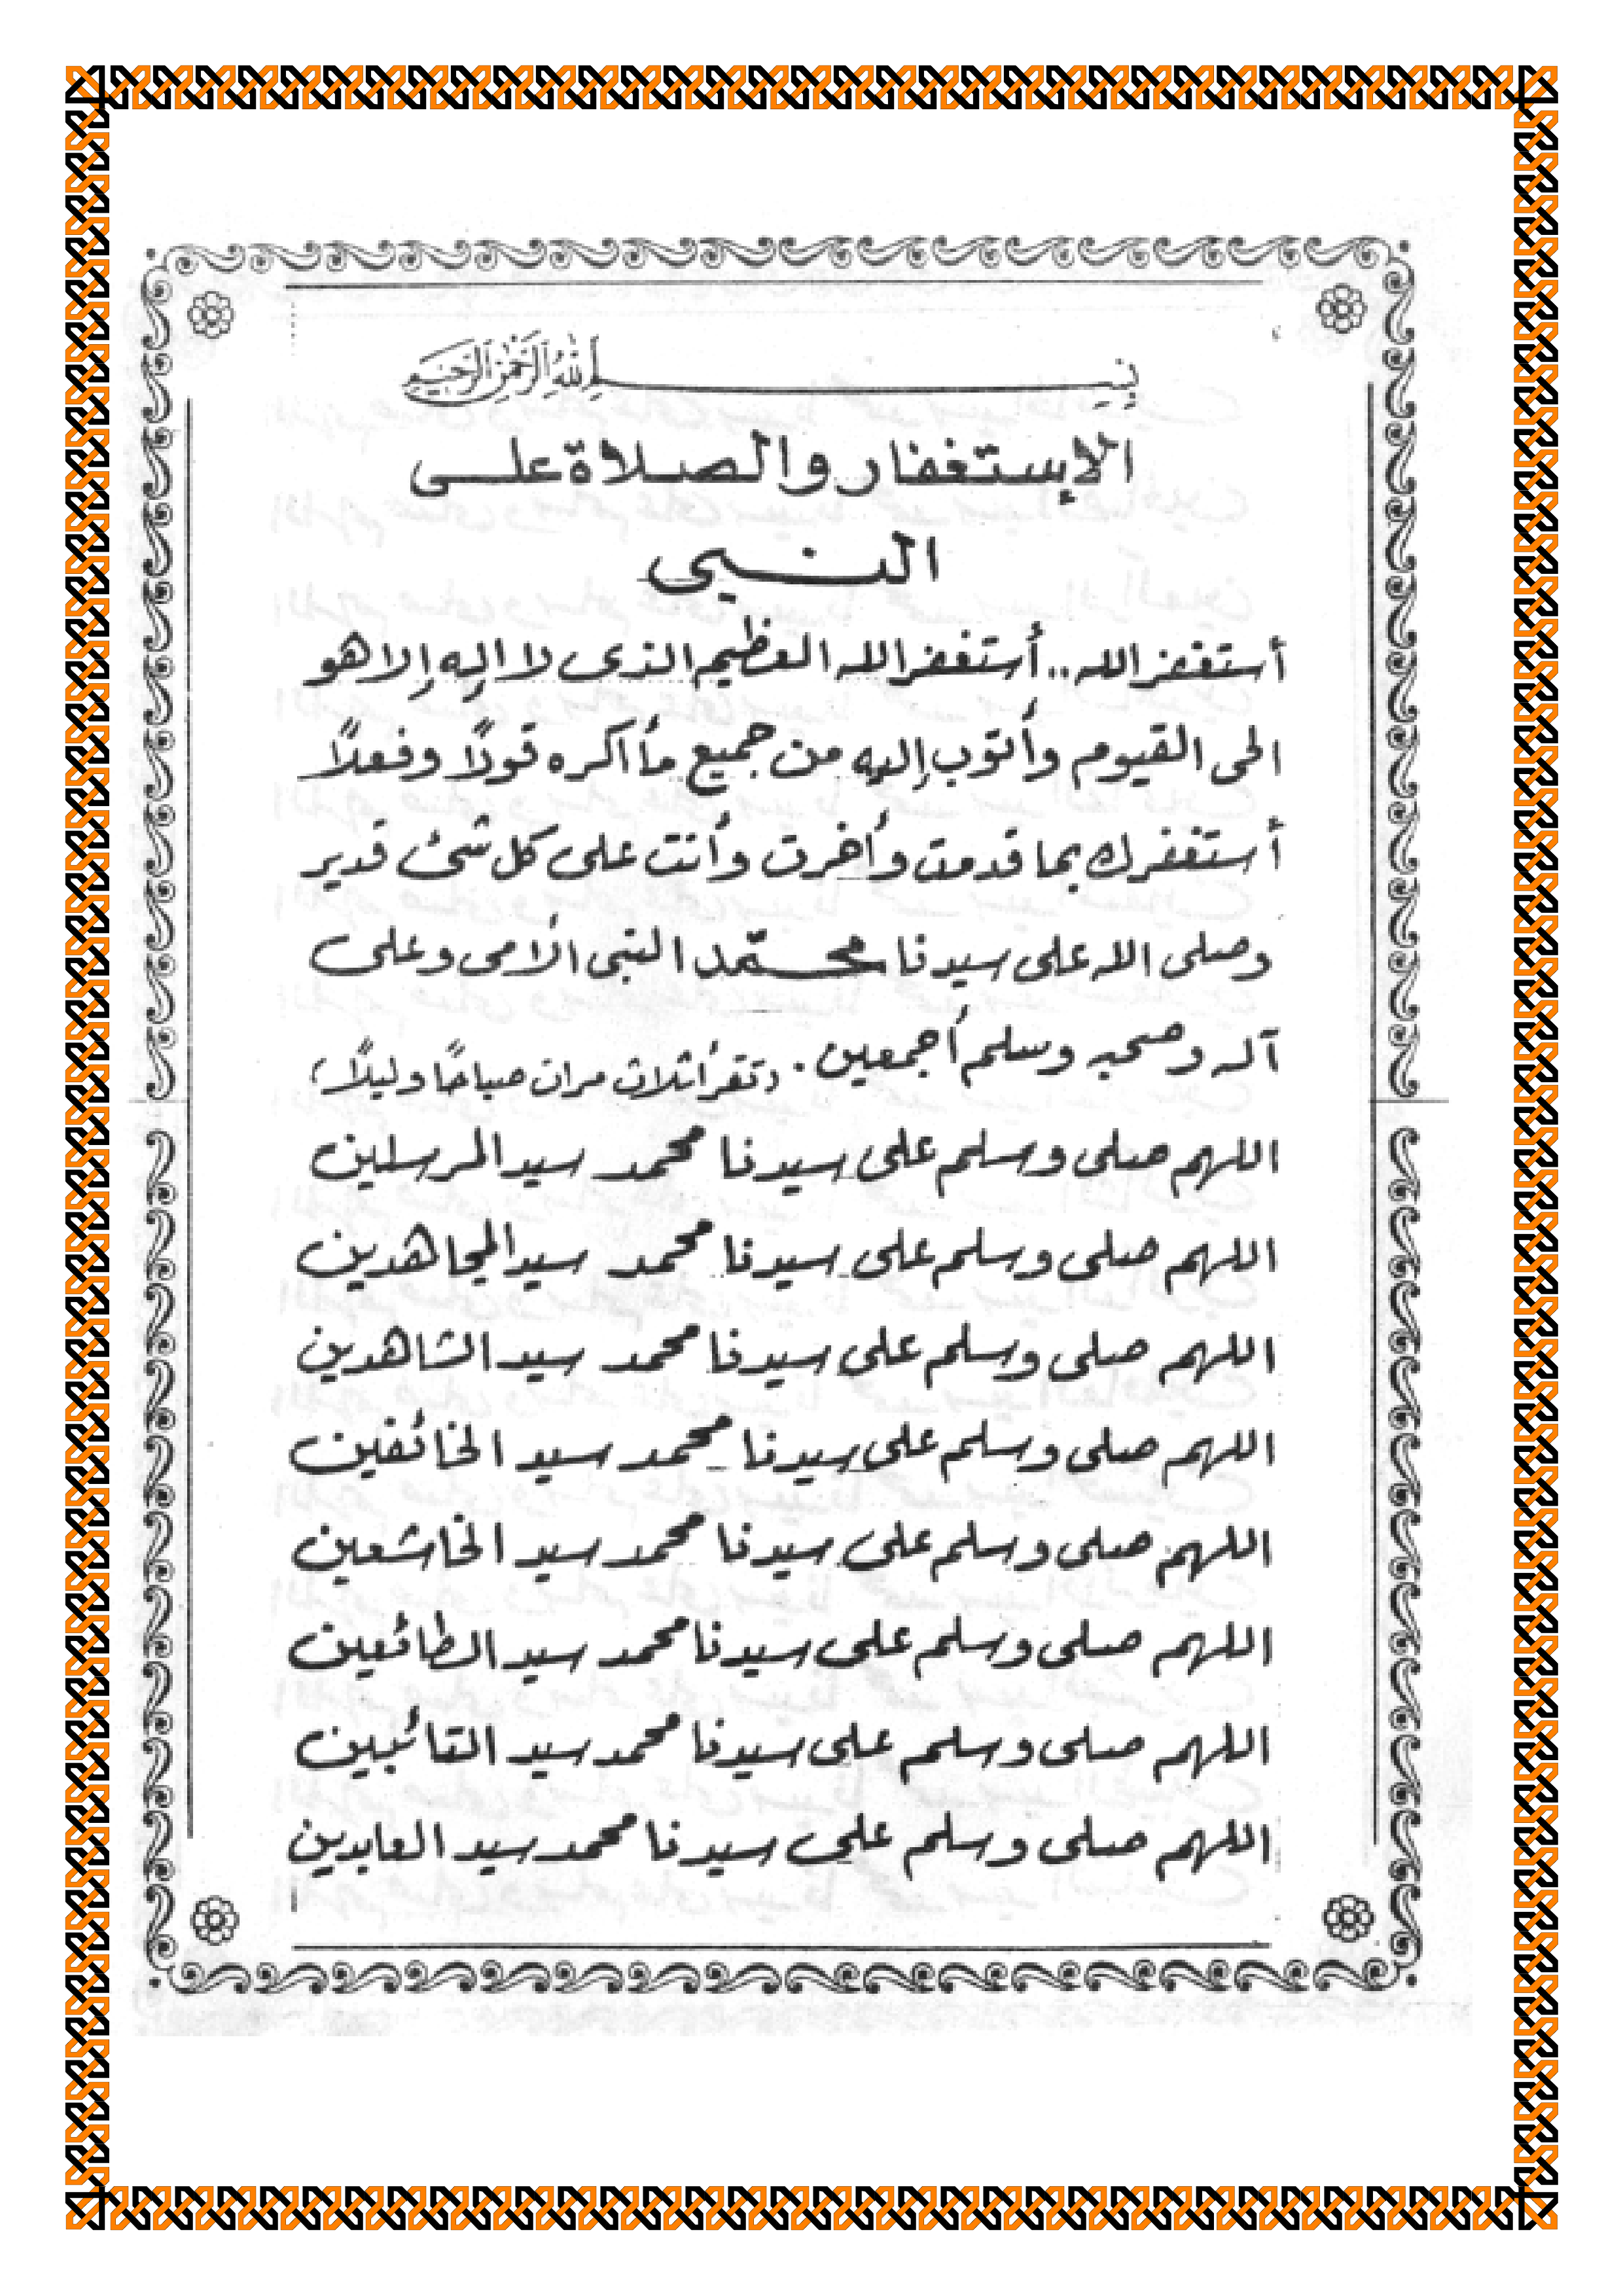 بسم الله الرحمن الرحيم
الإستغفار والصلاة على
النبي
أستغفر الله.. أستغفر الله العظيم الذى لا إله إلا هو
الحى القيوم وأتوب إليه من جميع ما أكره قولاً وفعلاً
أستغفرك بما قدمت وأخرت وأنت على كل شئ قدير
وصلى الله على سيدنا محمّد النبى الأمى وعلى
آله وصحبه وسلم أجمعين. (تقرأ ثلاث مرات صباحًا وليلًا)
اللهم صلى وسلم على سيدنا محمد سيد المرسلين
اللهم صلى وسلم على سيدنا محمد سيد المجاهدين
اللهم صلى وسلم على سيدنا محمد سيد الشاهدين
اللهم صلى وسلم على سيدنا محمد سيد الخائفين
اللهم صلى وسلم على سيدنا محمد سيد الخاشعين
اللهم صلى وسلم على سيدنا محمد سيد الطائعين
اللهم صلى وسلم على سيدنا محمد سيد التائبين
اللهم صلى وسلم على سيدنا محمد سيد العابدين